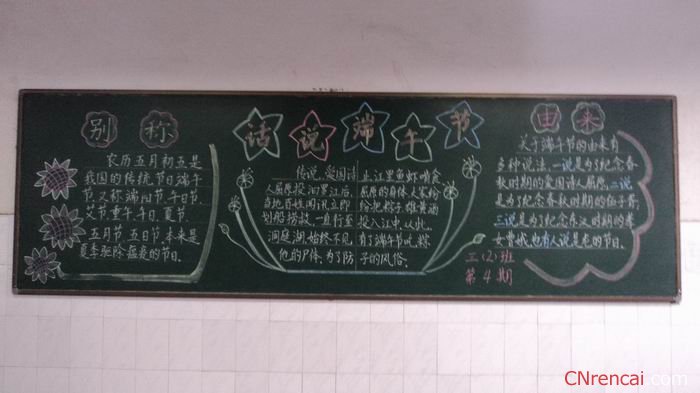 别称
农历五月初五是
我国的传统节日端午
节,又称端阳节、午日节、
艾节、重午、午日、夏节。
五月节、五日节,本来是
夏季驱除瘟疫的节日。
话说端午节
传说,爱国诗
人屈原投汨罗江后,
当地百姓闻讯立即
划船捞救,一直行至
洞庭湖,始终不见
他的尸体,为了防
止江里鱼虾啃食
屈原的身体,人家纷
纷把粽子、雄黄酒
投入江中,从此,
有了端午节吃粽
子的风俗。
由来
关于端午节的由来有
多种说法,一说是为了纪念春
秋时期的爱国诗人屈原,二说
是为了纪念春秋时期的伍子胥,
三说是为了纪念东汉时期的孝
女曹娥,也有人说是龙的节日。
三(2)班
第4期
CNrencai.com